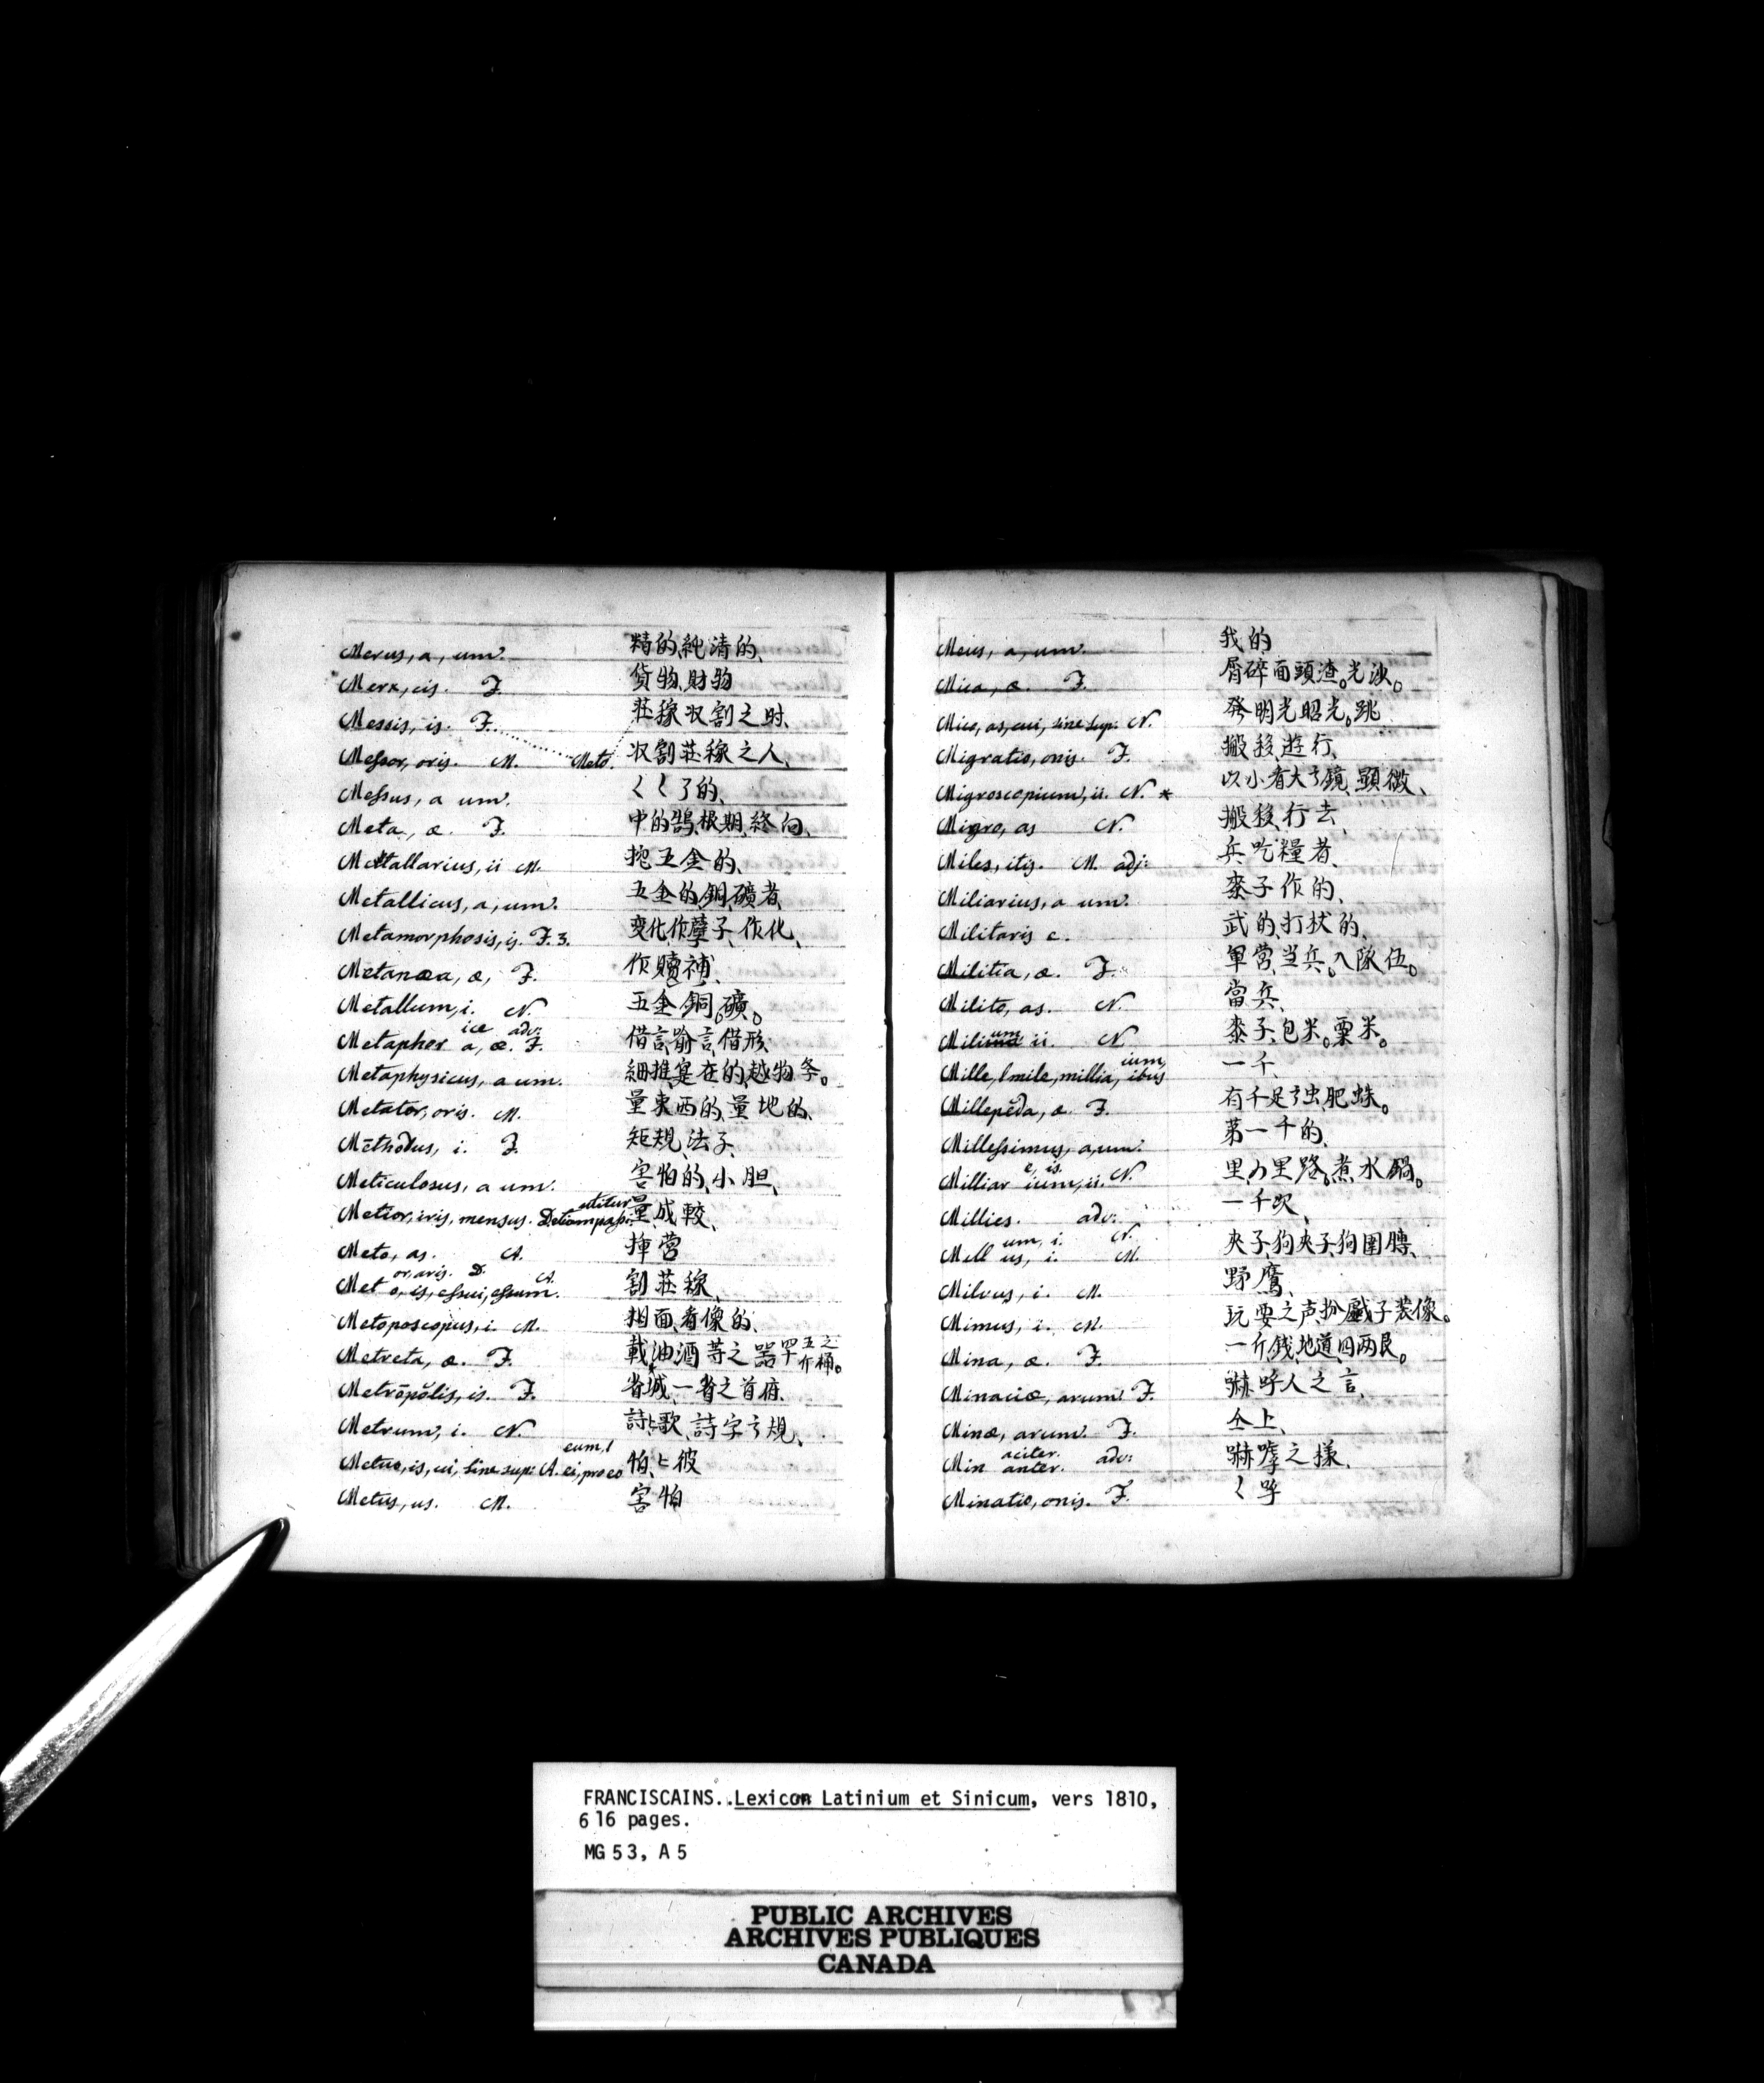 Merus, a, um. 精的、純清的、
Merx, cis. F. 貨物、財物
Messis, is. F. 莊稼収割之时、
Messor, oris. M. Meto. 収割莊稼之人、
Messus, a um. 〱〱了的、
Meta, æ. F. 中的鵠、根期、終向、
Metallarius, ii M. 挖五金的、
Metallicus, a, um. 五金的、銅礦者
Metamorphosis, is. F. 3. 变化、作孽子、作化、
Metanæa, æ, F. 作贖補、
Metallum, i. N. 五金、銅。礦。
icæ adv:
Metaphor a, æ. F. 借言、喻言、借形
Metaphysicus, a um. 細推寔在的、越物
Metator, oris. M. 量東西的、量地的、
Methŏdus, i. F. 矩規、法子、
Meticulosus, a um. 害怕的、小胆、
utitur
Metior, iris, mensus. D etiam pass: 量成較、
Meto, as. A. 揷营
or, aris. D. A.
Met o, is, essui, essum. 割莊稼、
Metoposcopus, i. M. 相面、看像的、
Metreta, æ. F. 載油酒等之器
Metrōpŏlis, is. F. 省城、一省之首府、
Metrum, i. N. 詩歌、詩字規、
eum, l
Metuo, is, ui, sine sup: A. ei, pro eo 怕、彼
Metus, us. M. 害怕
Meus, a, um. 我的
Mica, æ. F. 屑碎面頭渣。光
Mico, as, cui, sine sup: N. 發明光昭光。跳
Migratio, onis. F. 搬移、遊行、
Migroscopium, ii. N. * 以小看大鏡、顯微、
Migro, as N. 搬移、行去、
Miles, itis. M. adj: 兵、吃糧者、
Miliarius, a um. 黍子作的、
Militaris e. 武的、打仗的、
Militia, æ. F. 軍营、当兵。入隊伍。
Milito, as. N. 當兵、
Milium ii. N 黍子、包米。粟米。
ium,
Mille, l mile, millia, ibus 一千、
Millepĕda, æ. F. 有千足虫、肥蛛。
Millessimus, a, um. 第一千的、
e, is.
Milliar ium, ii. N. 里路。煮水鍋。
Millies. adv: 一千次、
um, i. N.
Mill us, i. M. 夾子、狗夾子、狗圍膊、
Milvus, i. M. 野鷹、
Mimus, i. M. 玩耍之声、扮戲子、装像。
Mina, æ. F. 一斤錢、地道、四两艮。
Minaciæ, arum. F. 嚇呼人之言、
Minæ, arum. F. 仝上、
aciter.
Min anter. adv: 嚇嘑之樣、
Minatio, onis. F. 〱呼
FRANCISCAINS..Lexicon Latinium et Sinicum, vers 1810,
616 pages.
MG 53, A 5
PUBLIC ARCHIVES
ARCHIVES PUBLIQUES
CANADA